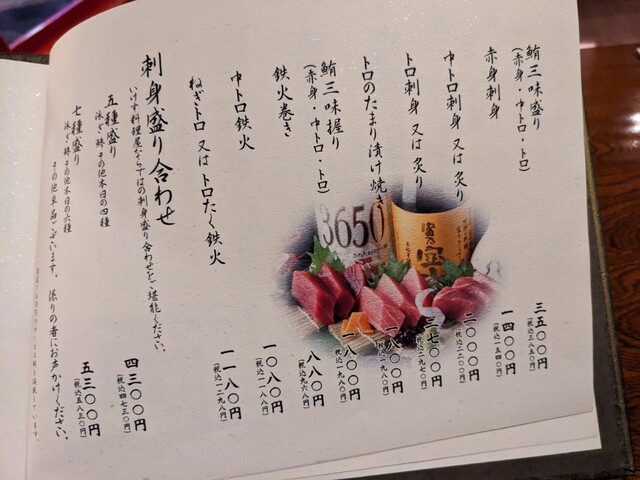 鮪三味盛り
(赤身・中トロ・トロ)
三五〇〇円
(税込三八五〇円)
赤身刺身
一四〇〇円
(税込一五四〇円)
中トロ刺身 又は 炙り
二〇〇〇円
(税込二二〇〇円)
トロ刺身 又は 炙り
二七〇〇円
(税込二九七〇円)
トロのたまり漬け焼き
一八〇〇円
(税込一九八〇円)
鮪三味握り
(赤身・中トロ・トロ)
一八〇〇円
(税込一九八〇円)
鉄火巻き
八八〇円
(税込九六八円)
中トロ鉄火
一〇八〇円
(税込一一八八円)
ねぎトロ 又は トロたく鉄火
一一八〇円
(税込一二九八円)
刺身盛り合わせ
いけす料理屋ならではの刺身盛り合わせをご堪能ください。
五種盛り
泳ぎ・鮪 その他本日の四種
四三〇〇円
(税込四七三〇円)
七種盛り
泳ぎ・鮪 その他本日の六種
五三〇〇円
(税込五八三〇円)
その他単品ございます。係りの者にお声かけください。
3650